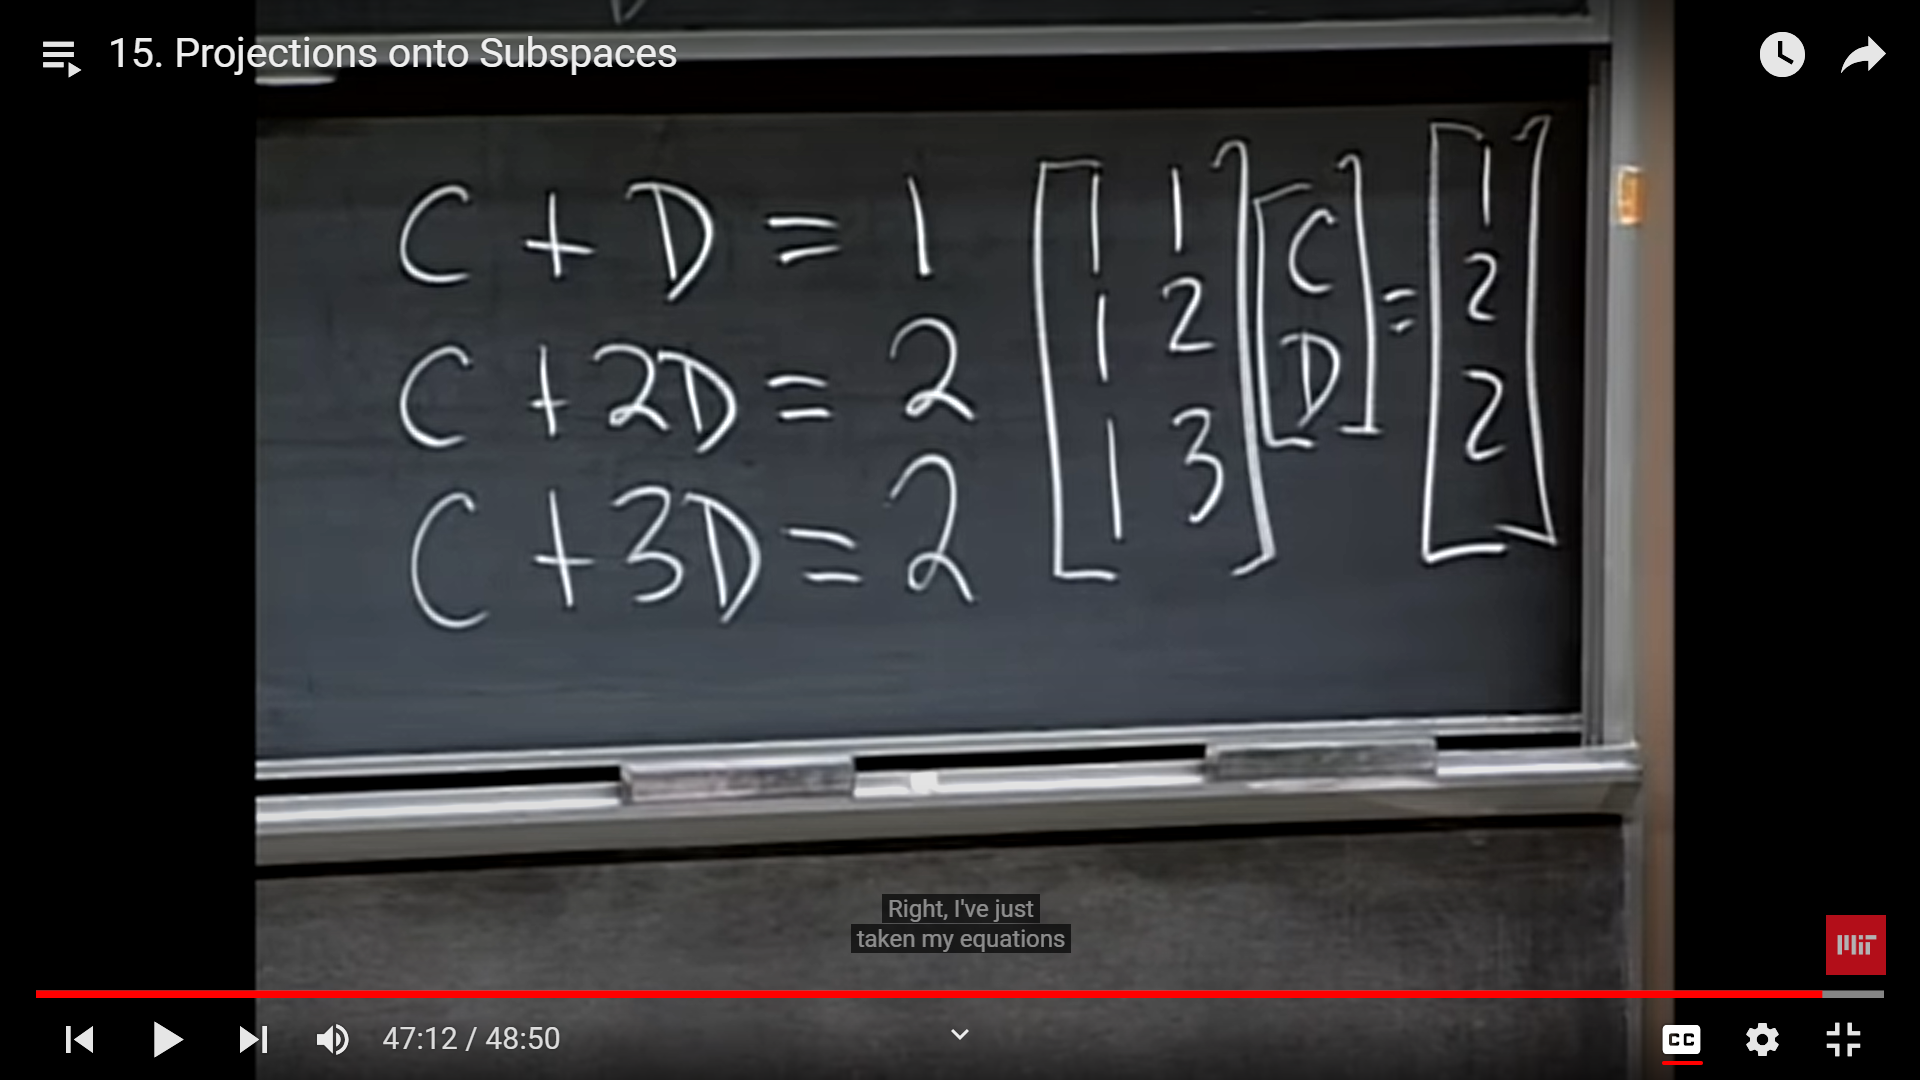 15. Projections onto Subspaces
C + D = 1
C + 2D = 2
C + 3D = 2
[1 1
1 2
1 3] [C
D] = [1
2
2]
Right, I've just
taken my equations
MIT
47:12 / 48:50
CC